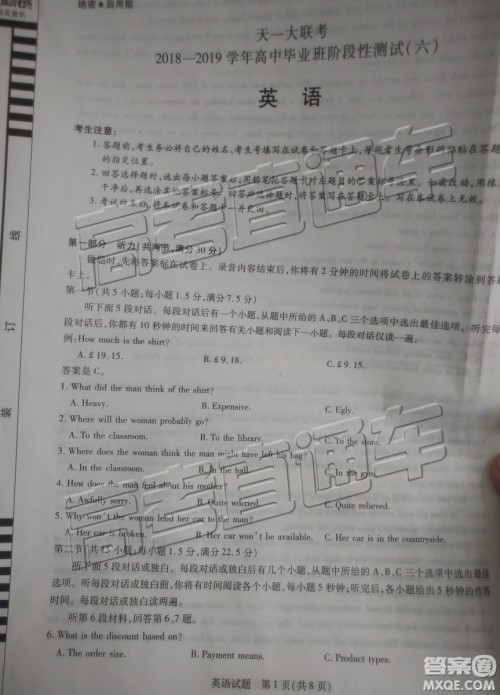 绝密★启用前
天一大联考
2018—2019 学年高中毕业班阶段性测试(六)
英 语
考生注意:
1. 答题前,考生务必将自己的姓名、考生号填写在试卷和答题卡上,并将考生号条形码粘贴在答题卡上
的指定位置。
2. 回答选择题时,选出每小题答案后,用铅笔把答题卡对应题目的答案标号涂黑。
干净后,再选涂其他答案标号。
3. 考试结束后,将本试卷和答题卡一并交回。
第一部分 听力(共两节,满分 30 分)
做题时,先将答案标在试卷上。录音内容结束后,你将有 2 分钟的时间将试卷上的答案转涂到答题
卡上。
第一节(共 5 小题;每小题 1.5 分,满分 7.5 分)
听下面 5 段对话。每段对话后有一个小题,从题中所给的 A、B、C 三个选项中选出最佳选项。
段对话后,你都有 10 秒钟的时间来回答有关小题和阅读下一小题。每段对话仅读一遍。
例:How much is the shirt?
A. £ 19. 15. B. £ 9. 18. C. £ 9. 15.
答案是 C。
1. What did the man think of the shirt?
A. Heavy. B. Expensive. C. Ugly.
2. Where will the woman probably go?
A. To the classroom. B. To the C. To the store.
3. Where does the woman think the man might have left his bag?
A. In the classroom. B. In the hall. C. In the gym.
4. How does the man feel about his mother?
A. Awfully sorry. B. Quite worried. C. Quite relieved.
5. Why won't the woman lend her car to the man?
A. She needs her car. B. Her car won't be available. C. Her car is in the countryside.
第二节(共 15 小题;每小题 1.5 分,满分 22.5 分)
听下面 5 段对话或独白。每段对话或独白后有几个小题,从题中所给的 A、B、C 三个选项中选出最佳
选项。听每段对话或独白前,你将有时间阅读各个小题,每小题 5 秒钟;听完后,各小题将给出 5 秒钟的作答
时间。每段对话或独白读两遍。
听第 6 段材料,回答第 6、7 题。
6. What is the discount based on?
A. The order size. B. Payment methods. C. Product types.
英语试题 第 1 页(共 8 页)
线
订
装
高考直通车
高考直通车
答案圈
MXQE.COM